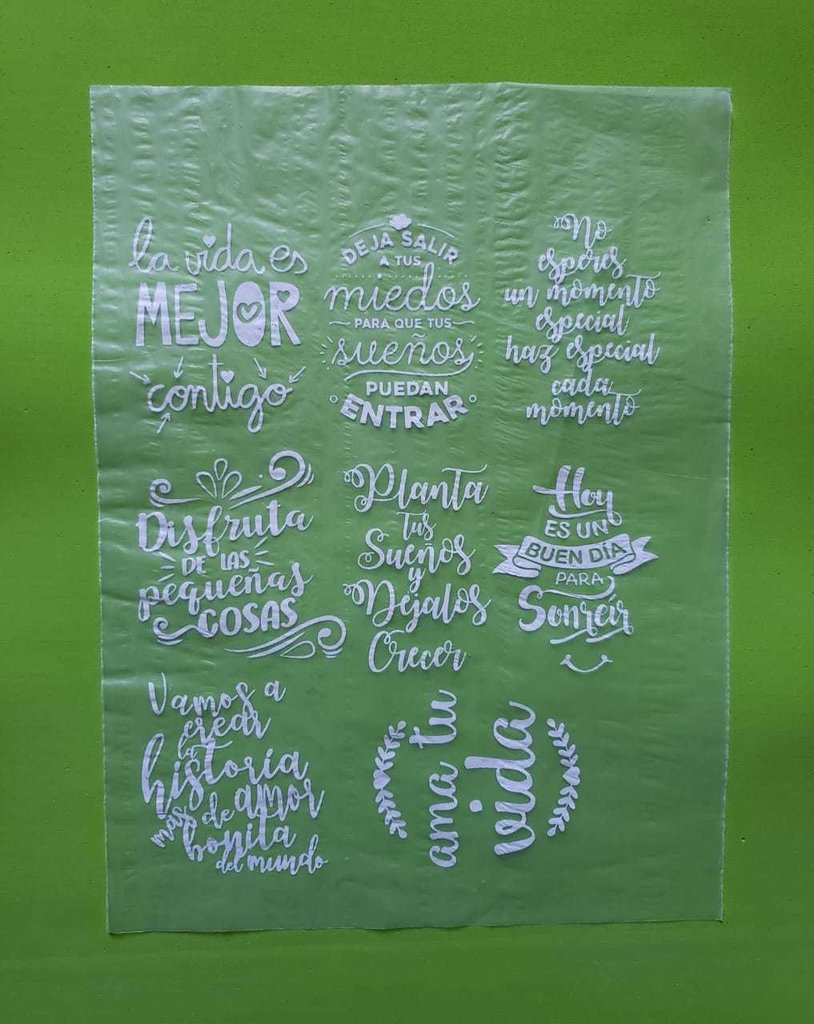 la vida es
MEJOR
contigo
DEJA SALIR
A TUS
miedos
PARA QUE TUS
sueños
PUEDAN
ENTRAR
No
esperes
un momento
especial
haz especial
cada
momento
Disfruta
DE LAS
pequeñas
COSAS
Planta
tus
Sueños
y
Déjalos
Crecer
Hoy
ES UN
BUEN DÍA
PARA
Sonreir
Vamos a
crear
la
historia
más de amor
bonita
del mundo
ama tu
vida